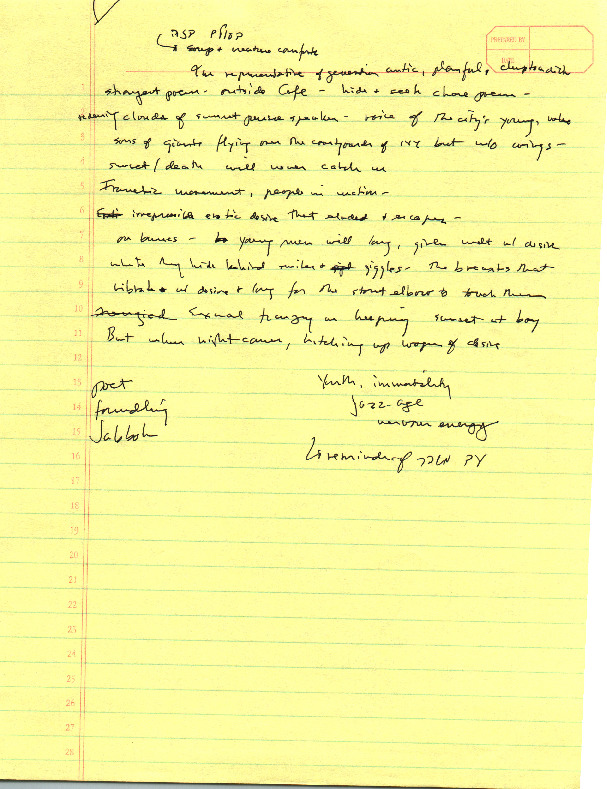 soup + creature comforts
representative of generation antic, playful,
strongest poem - outside Cafe - hide + seek chase poem -
clouds of sunset pursue speaker - voice of the city's young,
sons of giants flying over the courtyards of ivy but w/o wings -
sunset/death will never catch us
Frenetic movement, people in motion -
irrepressible erotic desire that eluded + escapes -
on buses - young men will long, girls melt w/ desire
while they hide behind smiles + giggles - the breasts that
vibrate w/ desire + long for the stout elbow to touch them
Sexual frenzy in keeping sunset at bay
But when night comes, hitching up wagon of desire
PREPARED BY
DATE
1
2
3
4
5
6
7
8
9
10
11
12
13
14
15
16
17
18
19
20
21
22
23
24
25
26
27
28
poet
foundling
Jabbok
Youth, immortality
Jazz-age
nervous energy
reminder of